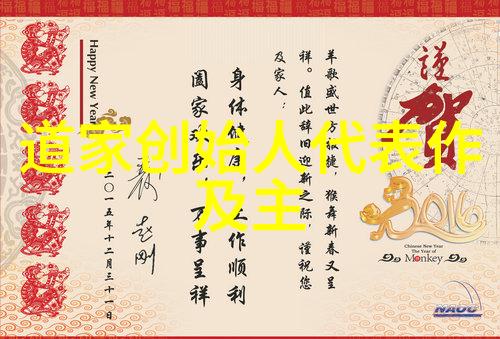 道家创始人代表作
及主
Happy New Year
謹
賀
羊歌盛世方报捷，猴舞新春又呈
祥。值此辞旧迎新之际，谨祝您
及家人：
身体健康，工作顺利
阖家欢乐，万事呈祥
二〇一五年十二月三十一日
2016
Chinese New Year
The Year of
Monkey
NAOC